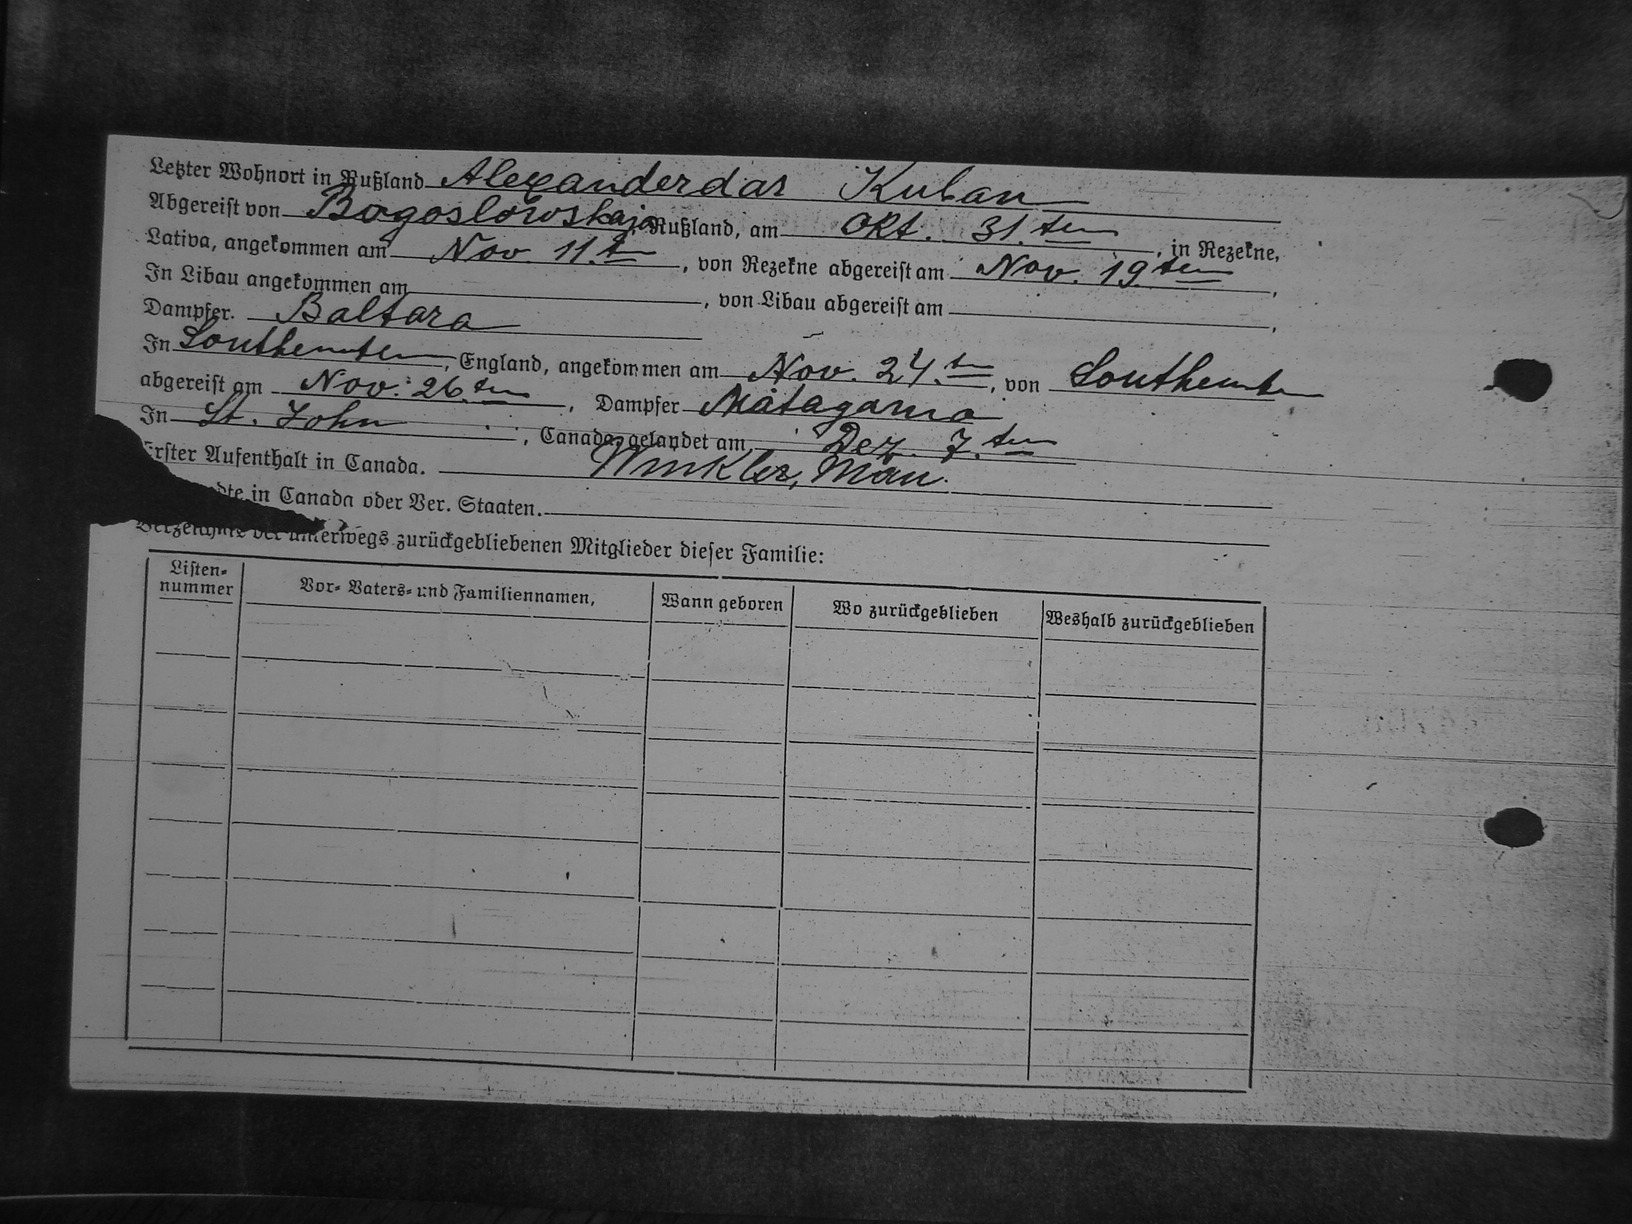 Letzter Wohnort in Rußland Alexanderdar Kuban
Abgereist von Bogoslowskaja, Rußland, am Okt. 31.ten, in Rezekne,
Lativa, angekommen am Nov 11.t, von Rezekne abgereist am Nov. 19ten,
In Libau angekommen am, von Libau abgereist am,
Dampfer. Baltara
In Southemten, England, angekommen am Nov. 24.tn, von Southemten
abgereist am Nov. 26.ten, Dampfer Matagama
In St. John, Canada, gelandet am Dez. 7.ten
Erster Aufenthalt in Canada. Winkler, Man.
dte in Canada oder Ver. Staaten.
Verzeichnis der unterwegs zurückgebliebenen Mitglieder dieser Familie:
Listen-
nummer
Vor- Vaters- und Familiennamen,
Wann geboren
Wo zurückgeblieben
Weshalb zurückgeblieben